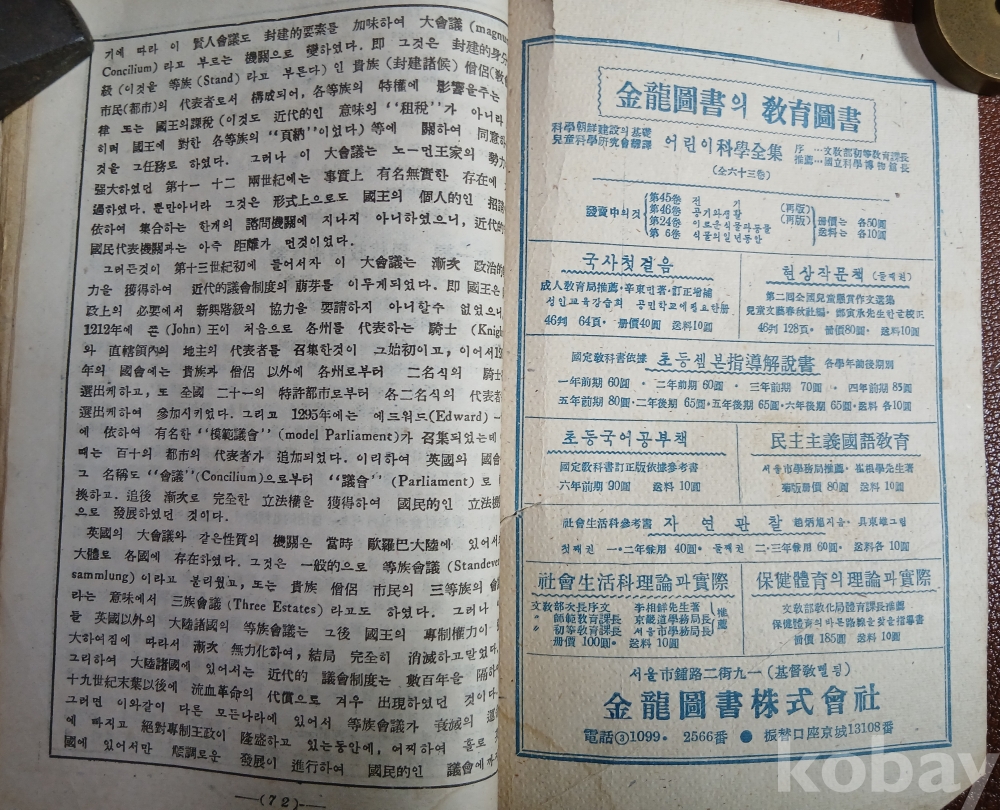 기에 따라 이 賢人會議도 封建的要素를 加味하여 大會議 (magnum
Concilium) 라고 부르는 機關으로 變하였다. 即 그것은 封建的身分
殺 (이것을 等族 (Stand) 라고 부른다) 인 貴族 (封建諸侯) 僧侶(敎會
市民(都市)의 代表者로서 構成되어, 各等族의 特權에 影響을주는
律 또는 國王의課稅 (이것도 近代的인 意味의 “租稅”가 아니라
히며 國王에 對한 各等族의 “貢納”이였다) 等에 關하여 同意하
것을 그任務로 하였다. 그러나 이 大會議는 노ー먼王家의 勢力
强大하였던 第十一 十二 兩世紀에는 事實上 有名無實한 存在에
過하였다. 뿐만아니라 그것은 形式上으로도 國王의 個人的인 招請
依하여 集合하는 한개의 諮問機關에 지나지 아니하였으니, 近代的
國民代表機關과는 아주 距離가 먼것이였다.
그러든것이 第十三世紀初에 들어서자 이 大會議는 漸次 政治的
力을 獲得하여 近代的議會制度의 萌芽를 이루게되었다. 即 國王은
政上의 必要에서 新興階級의 協力을 要請하지 아니할수 없었으니
1212年에 죤 (John) 王이 처음으로 各州를 代表하는 騎士 (Knigh
와 直轄領內의 地主의 代表者를 召集한것이 그始初이고, 이어서12
年의 國會에는 貴族과 僧侶 以外에 各州로부터 二名식의 騎士
選出케하고, 또 全國 二十一의 特許都市로부터 各二名식의 代表者
選出케하여 參加시키었다. 그리고 1295年에는 에드워드(Edward) 一
에 依하여 有名한 “模範議會” (model Parliament)가 召集되었는데
때는 百十의 都市의 代表者가 追加되었다. 이리하여 英國의 國會
그 名稱도 “會議” (Concilium)으로부터 “議會” (Parliament) 로
換하고. 追後 漸次로 完全한 立法權을 獲得하여 國民的인 立法機
으로 發展하였던 것이다.
英國의 大會議와 같은性質의 機關은 當時 歐羅巴大陸에 있어서
大體로 各國에 存在하였다. 그것은 一般的으로 等族會議 (Standever
sammlung) 이라고 불리웠고, 또는 貴族 僧侶 市民의 三等族의 會
라는 意味에서 三族會議 (Three Estates) 라고도 하였다. 그러나
들 英國以外의 大陸諸國의 等族會議는 그後 國王의 專制權力이
大하여짐에 따라서 漸次 無力化하여, 結局 完全히 消滅하고말았다.
그리하여 大陸諸國에 있어서는 近代的 議會制度는 數百年을 隔하
十九世紀末葉以後에 流血革命의 代償으로 겨우 出現하였던 것이다.
그러면 이와같이 다른 모든나라에 있어서 等族會議가 衰滅의 運
에 빠지고 絕對專制王政이 隆盛하고 있는동안에, 어찌하여 홀로
國에 있어서만 順調로운 發展이 進行하여 國民的인 議會에까지
—(72)—
金龍圖書의 敎育圖書
科學朝鮮建設의基礎
兒童科學硏究會飜譯
어린이科學全集
序 …文敎部初等敎育課長
推薦…國立科學博物館長
(全六十三卷)
發賣中의것
第45卷 전기 (再版)
第46卷 공기와생활 (再版)
第24卷 이로운식물과동물
第 6卷 식물의일년동안
册價는 各50圓
送料는 各10圓
국사첫걸음
成人敎育局推薦·辛東民著·訂正增補
성인교육강습회 공민학교에필요한册
46判 64頁· 册價40圓 送料10圓
현상작문책 (둘째권)
第二回全國兒童懸賞作文選集
兒童文藝春秋社編·鄭寅承先生한글校正
46判 128頁· 册價80圓· 送料10圓
國定敎科書依據 초등셈본指導解說書 各學年前後期別
一年前期 60圓 · 二年前期 60圓 · 三年前期 70圓 · 四年前期 85圓
五年前期 80圓·二年後期 65圓·五年後期 65圓·六年後期 65圓·送料 各10圓
초등국어공부책
國定敎科書訂正版依據參考書
六年前期 90圓 送料 10圓
民主主義國語敎育
서울市學務局推薦· 崔根學先生著
菊版册價 80圓 送料 10圓
社會生活科參考書 自然관찰 趙炳旭지음·具東雄그림
첫째권 一·二年兼用 40圓· 둘째권 二·三年兼用 60圓· 送料各10圓
社會生活科理論과實際
文敎部次長序文 李相鮮先生著
〃 師範敎育課長 京畿道學務局長
〃 初等敎育課長 서울市學務局長
推薦
册價 100圓· 送料 10圓
保健體育의理論과實際
文敎部敎化局體育課長推薦
保健體育의바른路線을찾을指導書
册價 185圓 送料 10圓
서울市鐘路二街九一 (基督敎삘딍)
金龍圖書株式會社
電話③1099· 2566番 ● 振替口座京城13108番
kobay